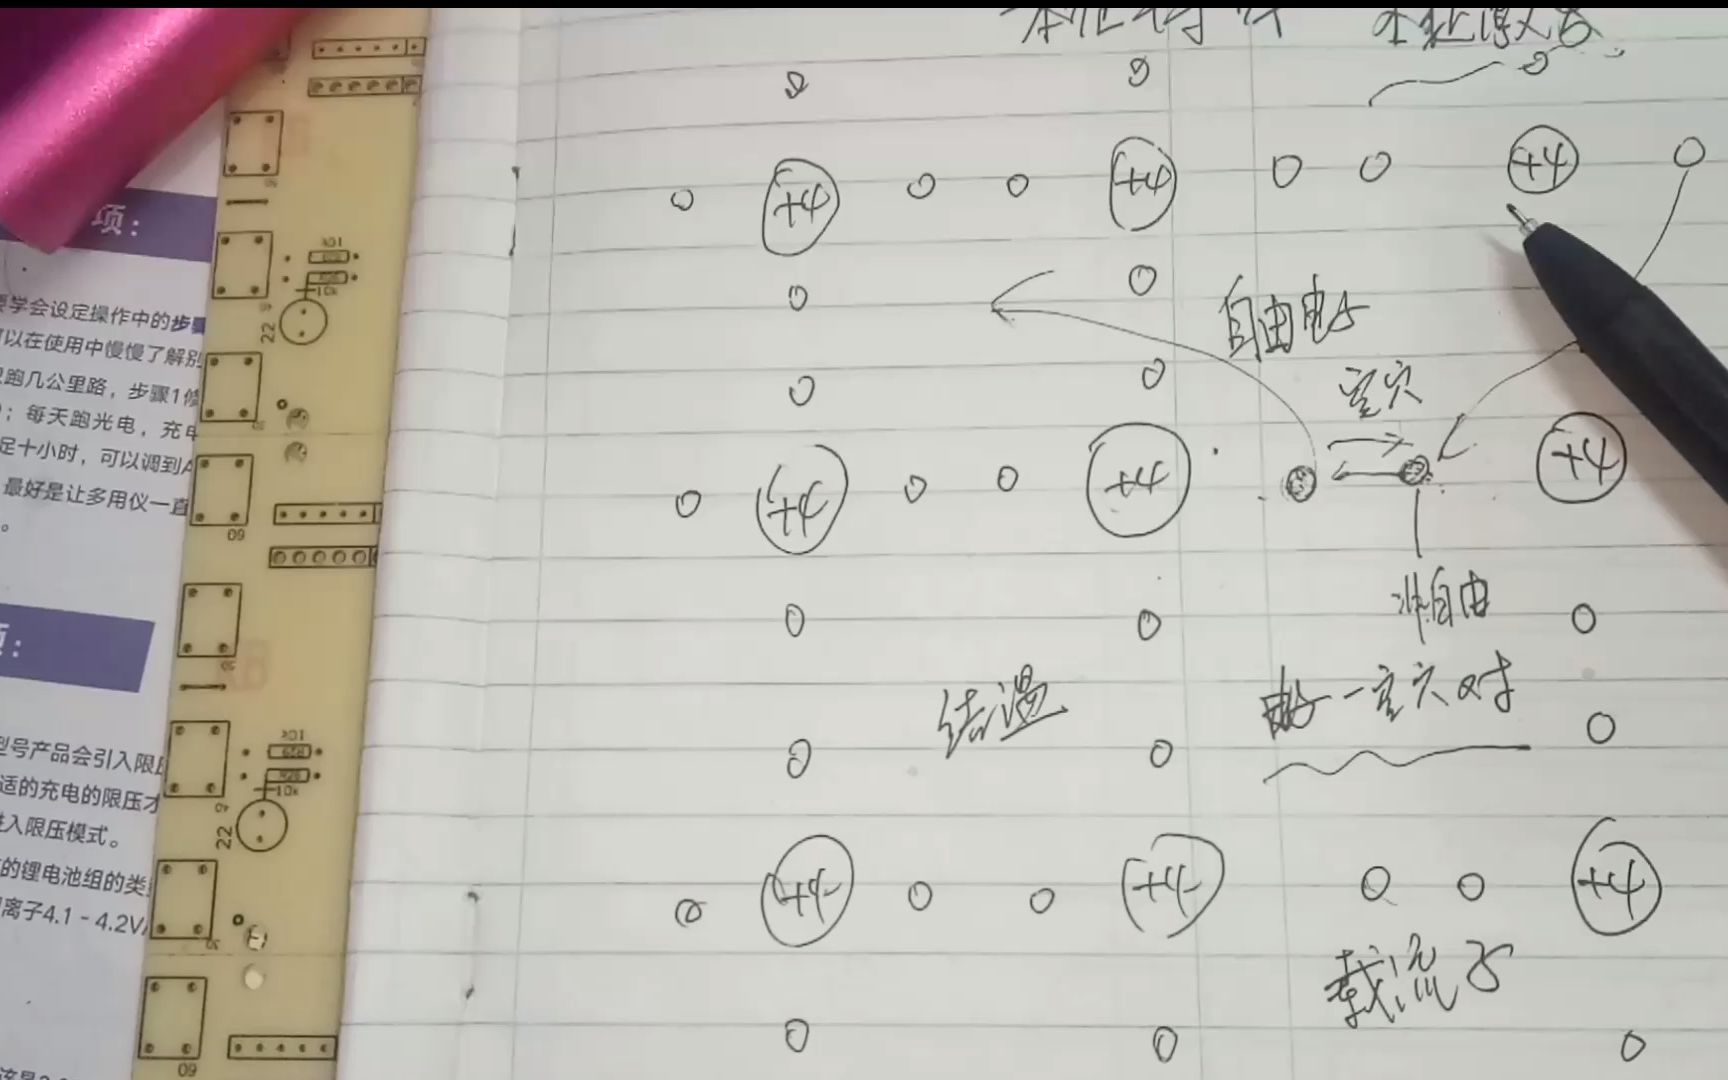 本征激发
+4
+4
+4
自由电子
空穴
+4
+4
+4
自由
结温
电子-空穴对
+4
+4
+4
载流子
项：
要学会设定操作中的步骤
可以在使用中慢慢了解别
跑几公里路，步骤1修
；每天跑光电，充电
足十小时，可以调到A
最好是让多用仪一直
。
项：
型号产品会引入限压
适的充电的限压才
进入限压模式。
的锂电池组的类
离子4.1-4.2V
10k
22
60
10k
R29
10k
22
60